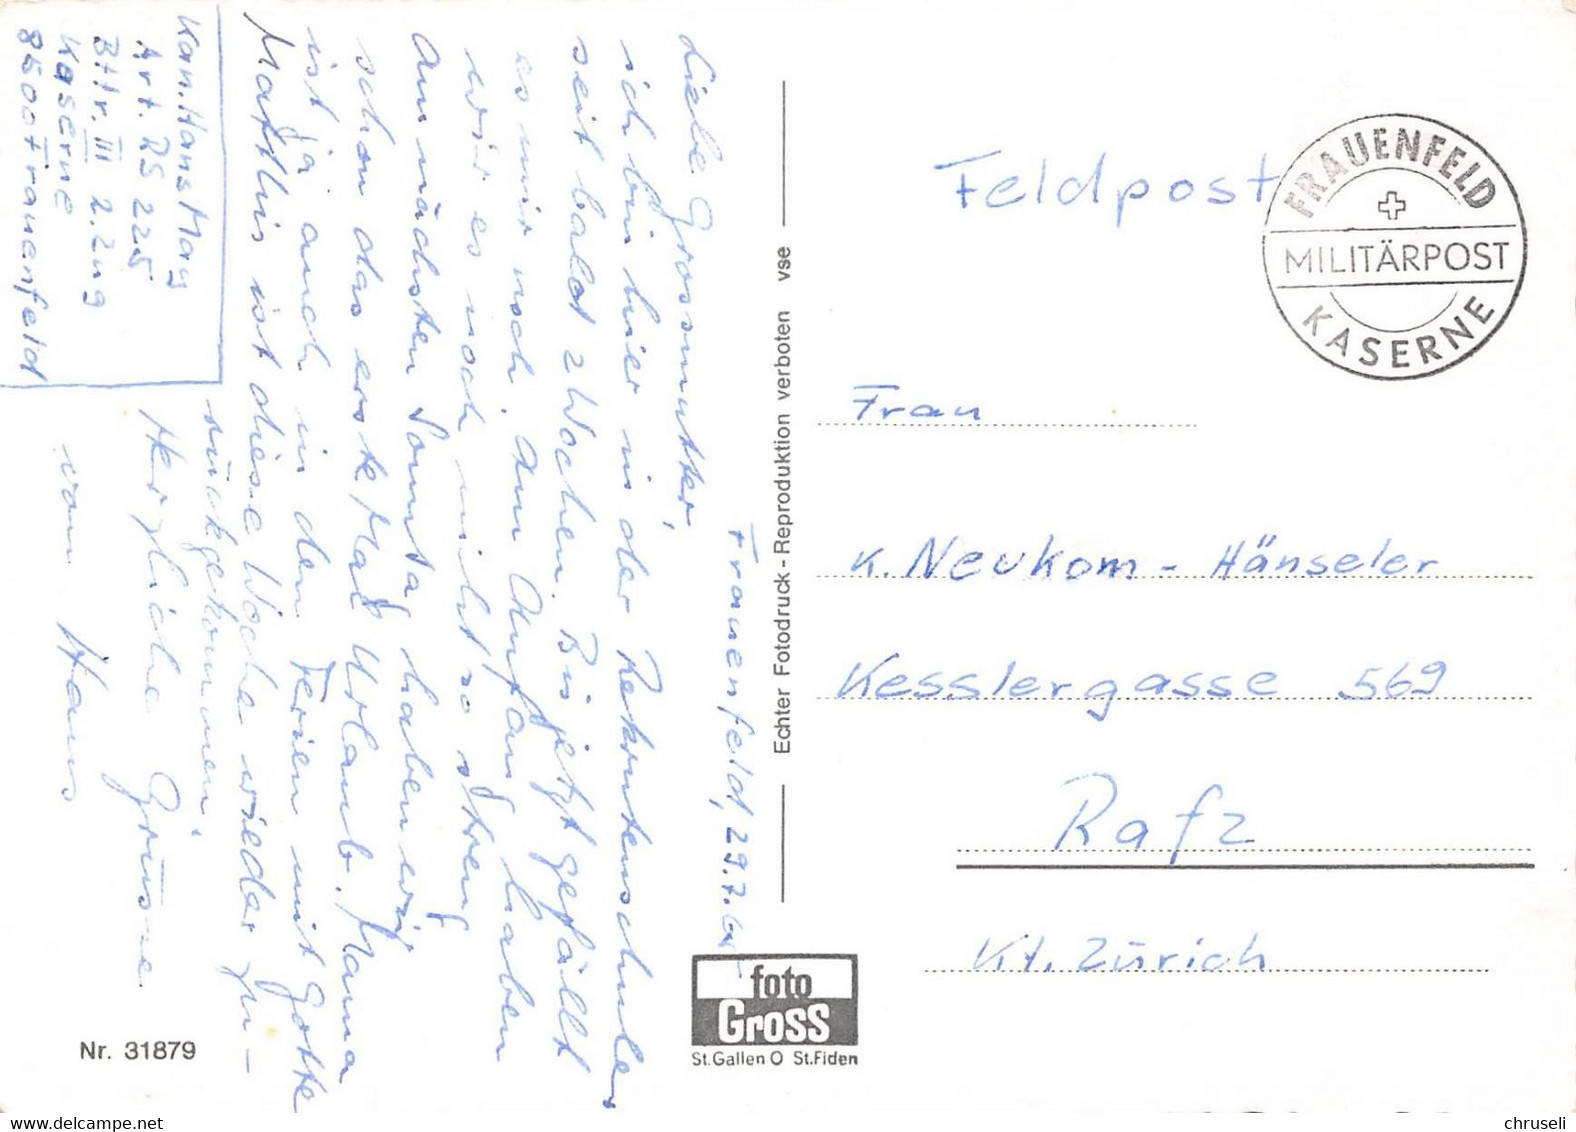 Kan. Hans May
Art. RS 225
Bttr. III 2. Zug
Kaserne
8500 Frauenfeld
Frauenfeld, 29.7.
Liebe Grossmutter,
ich bin hier in der Rekrutenschule
seit bald 2 Wochen. Bis jetzt gefällt
es mir noch. Am Anfang haben
wir es noch nicht so streng
Am nächsten Sonntag haben wir
schon das erste Mal Urlaub. Mama
ist ja auch in den Ferien mit Gotte
Mathis ist diese Woche wieder zu-
rückgekommen.
Herzliche Grüsse
von Hans
Echter Fotodruck - Reproduktion verboten vse
foto
Gross
St.Gallen O St.Fiden
Nr. 31879
Feldpost
FRAUENFELD
MILITÄRPOST
KASERNE
Frau
K. Neukom - Hänseler
Kesslergasse 569
Rafz
Kt. Zürich
chruseli